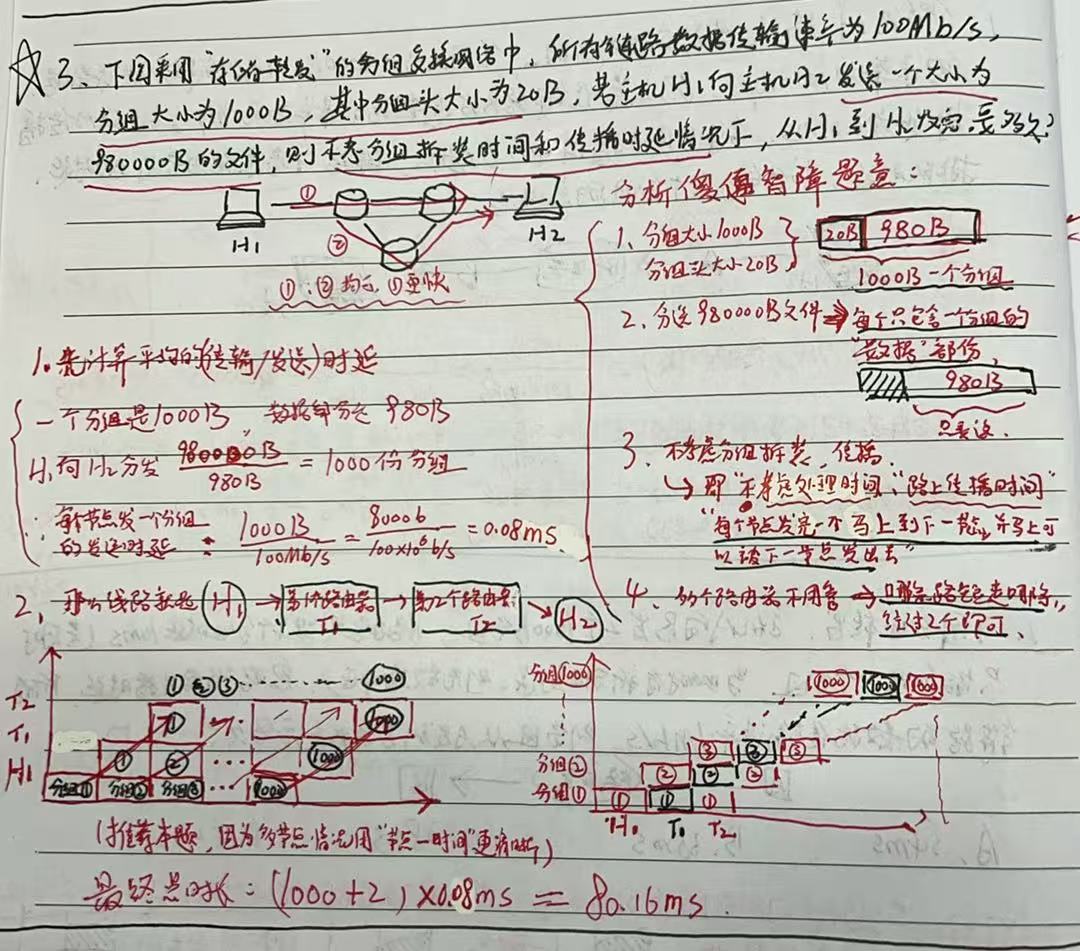 ☆3、下图采用“存储转发”的分组交换网络中，所有链路数据传输速率为100Mb/s，
分组大小为1000B，其中分组头大小为20B，若主机H1向主机H2发送一个大小为
980000B的文件，则不考分组拆装时间和传播时延情况下，从H1到H2发完要多久？
①
②
H1
H2
①、②均可，①更快
分析傻傻智障题意：
1、分组大小1000B
分组头大小20B
20B 980B
1000B一个分组
2、发送980000B文件→每个只包含一个分组的
“数据”部份，
980B
只要这.
3、不考虑分组拆装、传播.
↳即“不考虑处理时间、“路上传播时间”
“每个节点发完一个马上到下一节点，并马上可
以被下一节点发出去”
4、多个路由器不用管→哪条路短走哪条，
经过2个即可、
1.先计算平均的(传输/发送)时延
一个分组是1000B，数据部分是980B
H1向H2分发 980000B/980B = 1000份分组
∴每个节点发一个分组
的发送时延 : 1000B/100Mb/s = 8000b/100×10⁶b/s = 0.08ms.
2、那么线路就是 H1 → 第1个路由器 T1 → 第2个路由器 T2 → H2
T2
T1
H1
① ② ③ ……… 1000
① 1000
① ② … 1000
分组① 分组② 分组③ … 1000
(推荐本题，因为多节点情况用“节点—时间”更清晰)
分组1000
1000 1000 1000
分组②
分组①
③ ③ ③
② ② ②
① ① ①
H1 T1 T2
最终总时长：(1000+2)×0.08ms = 80.16ms.